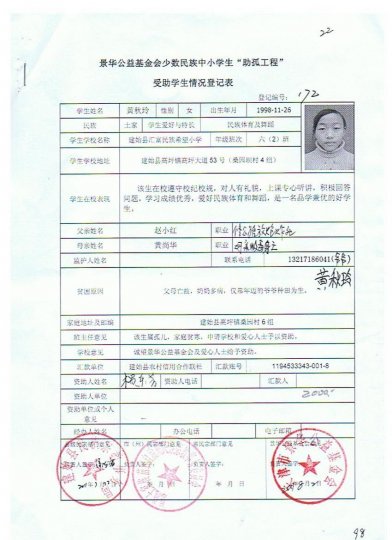 22
景华公益基金会少数民族中小学生“助孤工程”
受助学生情况登记表
登记编号: 172
学生姓名 黄秋玲 性别 女 出生年月 1998-11-26
民族 土家 学生爱好与特长 民族体育及舞蹈
学生学校名称 建始县汇富民族希望小学 年级班次 六（2）班
学生学校地址 建始县高坪镇高坪大道53号（桑园坝村4组）
学生在校表现
该生在校遵守校纪校规，对人有礼貌，上课专心听讲，积极回答
问题，学习成绩优秀，爱好民族体育和舞蹈，是一名品学兼优的好学
生。
父亲姓名 赵小红 职业
母亲姓名 黄尚华 职业
监护人姓名 联系电话 13217186041
黄秋玲
贫困原因 父母亡故，奶奶多病，仅靠年迈的爷爷种田为生。
家庭地址及邮编 建始县高坪镇桑园村6组
班主任意见 该生属孤儿，家庭贫寒，申请学校和爱心人士予以资助。
学校意见 诚望景华公益基金会及爱心人士给予资助。
汇款单位 建始县农村信用合作联社 汇款账号 1194533343-001-8
资助人姓名 资助人电话 汇款人
资助人单位 2000
资助单位或个人
意见
经办人姓名 办公电话 电子邮箱
负责人签字: 负责人签字:
年 月 日 年 月 日
98